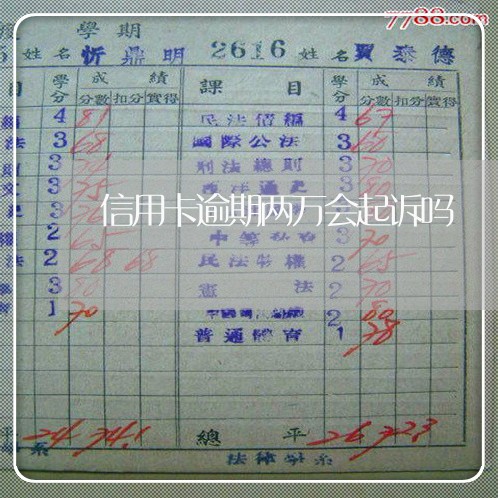 7788.com
學期
姓名 忻鼎明 2616 姓名 賈泰德
目 學分 成績 課目 學分 成績
分數 扣分 實得 分數 扣分 實得
4 81 民法債編 4 67
法 3 68 國際公法 3 60
3 刑法總則 3 70
3 75 西洋通史
信用卡逾期两万会起诉吗
2 65 3 70
法 2 68 68 民法物權 2 65
3 80 憲法 2 70
1 70 2 80
普通體育 1 78
平 24 74.1 總平 26 72.3
系 法律學系